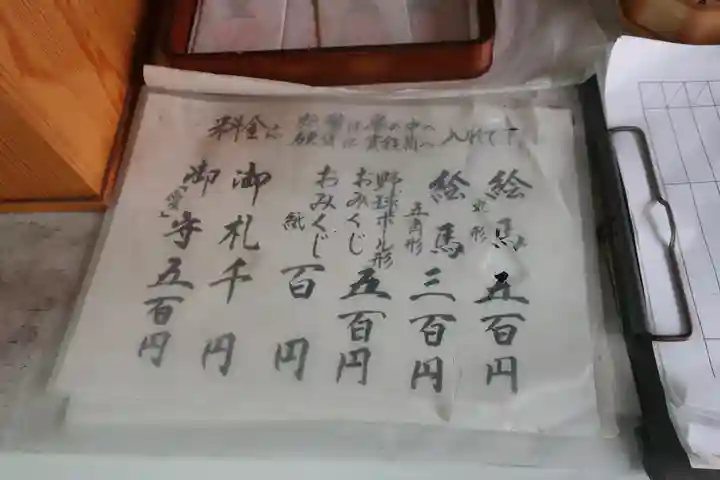 料金は
紙幣は箱の中へ
硬貨は賽銭箱へ
入れて下
絵馬 丸形 五百円
絵馬 五角形 三百円
野球ボール形
おみくじ 五百円
おみくじ 紙 百円
御札 千円
御守 五百円